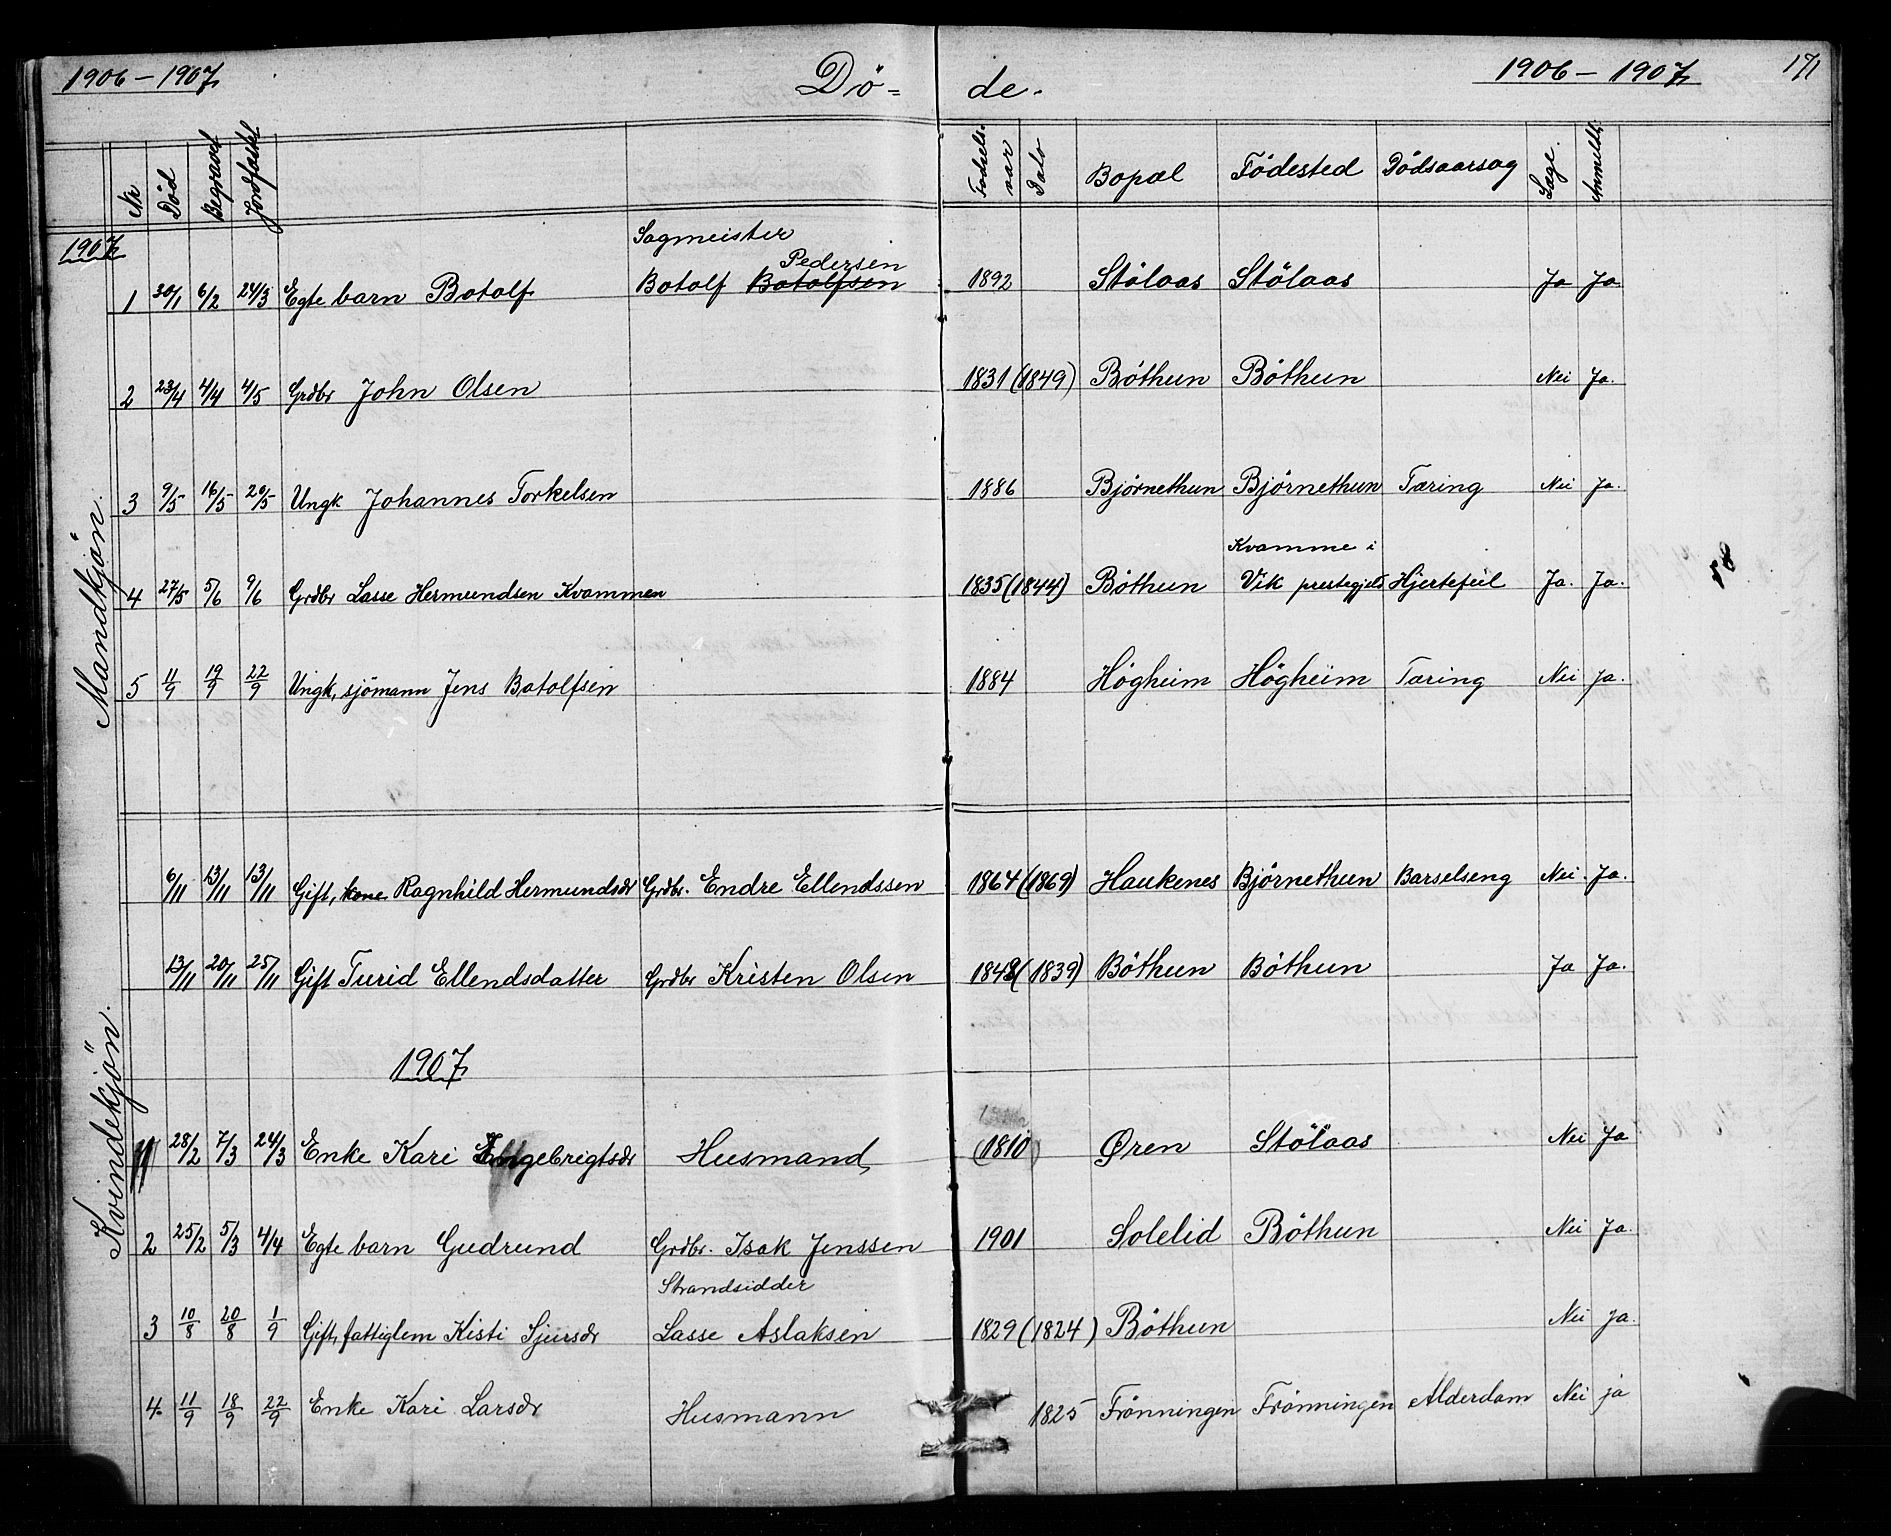 1906 – 1907 Dö= de. 1906 – 1907 171
Nr Död Begravet Jordfastet Födsels-aar Dato Bopæl Födested Dödsaarsag Læge. Anmeldt.
Mandkjön.
1907
Sagmeister
Pedersen
1 30/1 6/2 24/3 Egte barn Botolf Botolf Botolfsen 1892 Stölaas Stölaas Ja Ja
2 23/4 4/4 4/5 Grdbr John Olsen 1831 (1849) Böthun Böthun Nei Ja.
3 9/5 16/5 20/5 Ungk Johannes Torkelsen 1886 Bjørnethun Bjørnethun Tæring Nei Ja.
Kvamme i
4 27/5 5/6 9/6 Grdbr Lasse Hermundsen Kvammen 1835 (1844) Böthun Vik prestegjeld Hjertefeil Ja. Ja. 58
5 11/9 19/9 22/9 Ungk, sjömann Jens Botolfsen 1884 Högheim Högheim Tæring Nei Ja.
Kvindekjön.
6/11 13/11 13/11 Gift, kone Ragnhild Hermundsdr Grdbr. Endre Ellendssen 1864 (1869) Haukenes Bjørnethun Barselseng Nei. Ja.
13/11 20/11 25/11 Gift Turid Ellendsdatter Grdbr Kristen Olsen 1848 (1839) Böthun Böthun Ja Ja.
1907
1 28/2 7/3 24/3 Enke Kari Engebrigtsdr Husmand, (1810) Øren Stölaas Nei Ja
2 25/2 5/3 4/4 Egte barn Gudrund Grdbr. Isak Jenssen 1901 Solelid Böthun Nei Ja.
Strandsidder
3 10/8 20/8 1/9 Gift, fattiglem Kisti Sjursdr Lasse Aslaksen 1829 (1824) Böthun Nei Ja.
4. 11/9 18/9 22/9 Enke Kari Larsdr Husmann 1825 Frönningen Frönningen Alderdom Nei ja